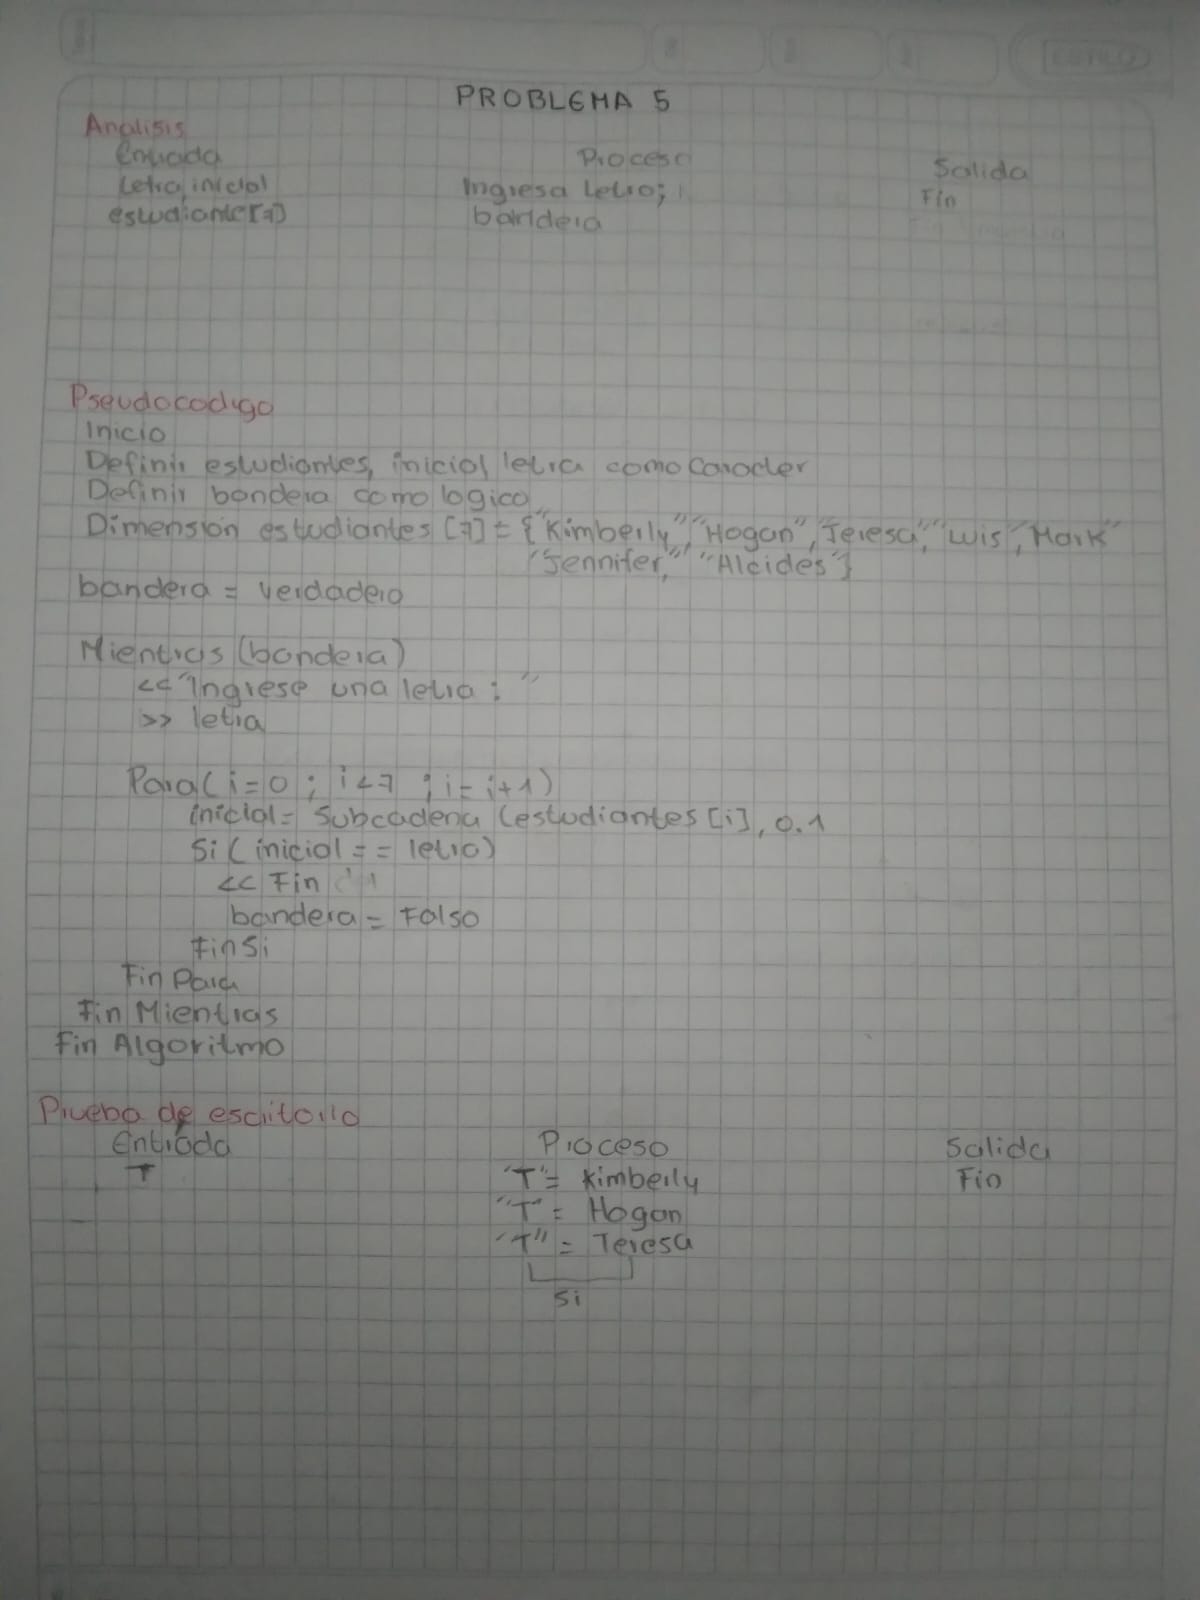 PROBLEMA 5
Analisis
Entrada Proceso Salida
Letra, inicial Ingresa Letra; Fin
estudiante[7] bandera
Pseudocodigo
Inicio
Definir estudiantes, inicial letra como Caracter
Definir bandera como logico
Dimension estudiantes [7] = {"Kimberly", "Hogan", Teresa", "Luis", Mark"
"Jennifer," "Alcides"}
bandera = verdadero
Mientras (bandera)
<< "Ingrese una letra : "
>> letra
Para( i=0 ; i<7 ; i= i+1)
inicial= Subcadena (estudiantes [i], 0.1
Si ( inicial = = letra)
<< Fin
bandera = Falso
Fin Si
Fin Para
Fin Mientras
Fin Algoritmo
Prueba de escritorio
Entrada Proceso Salida
T "T"= Kimberly Fin
"T" = Hogan
"T" = Teresa
Si